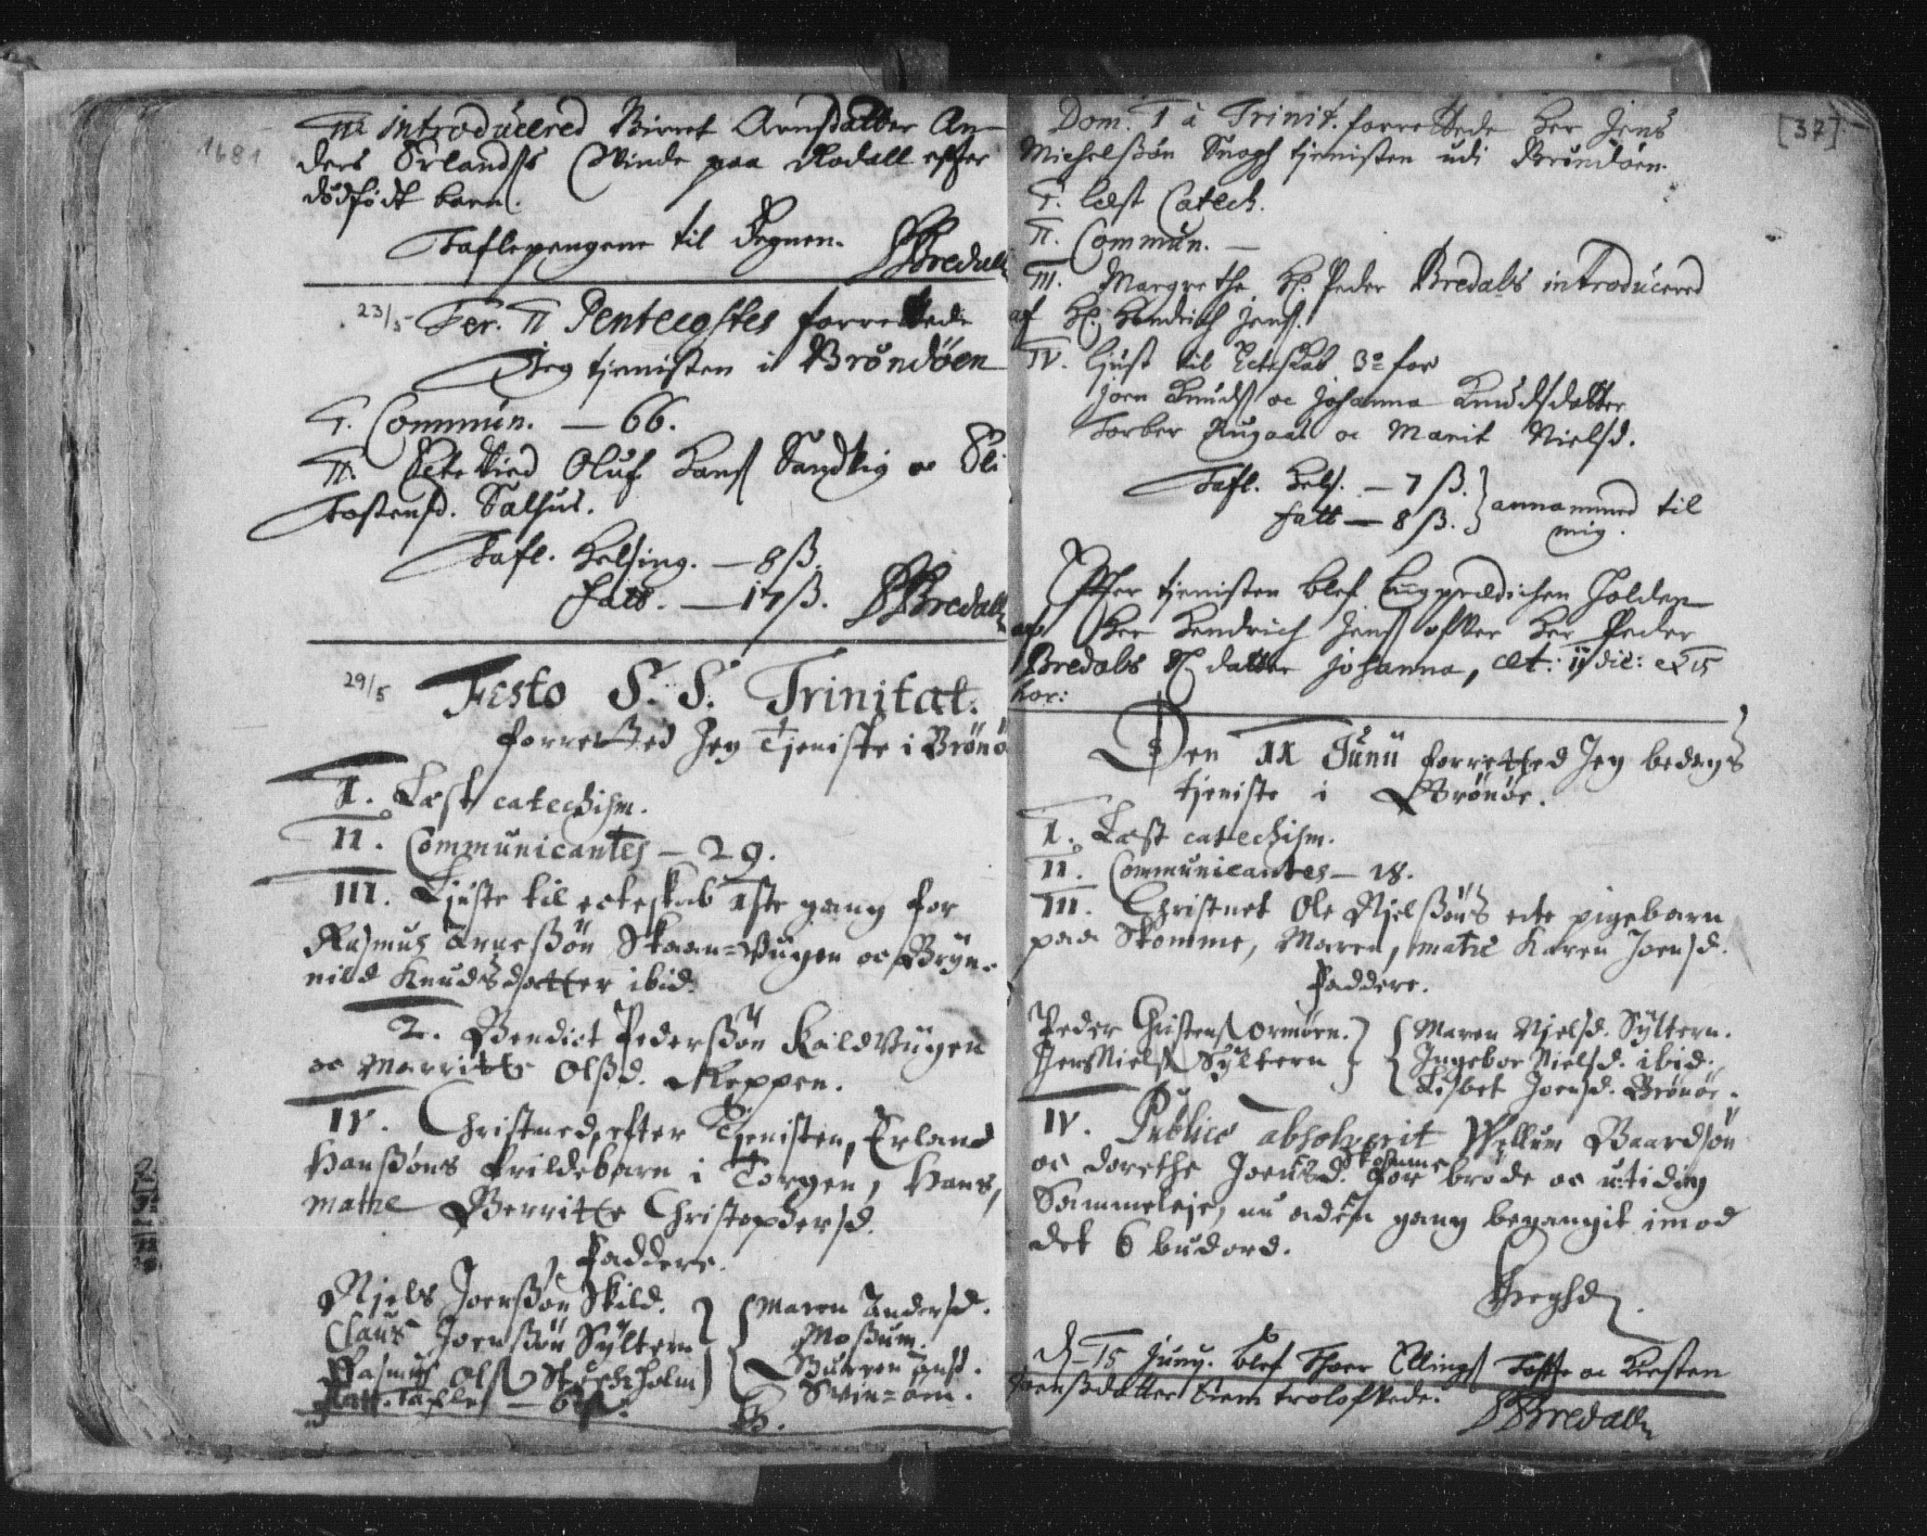 1681
III introducered Birret Arnsdatter An-
ders Erlands Qvinde paa Rodall efter
dødfødt barn.
Taflepengene til Degnen.
PBredall
23/5 Fer. II Pentecostes forrettede
Jeg tjenisten i Brøndöen
I. Commun. — 66.
II. Ectevied Oluf Hans Sandvig oc
Tostensd. Salhus.
Tafl. Helsing. — 8 ß.
Fatt. — 17 ß. PBredall
29/5 Festo S. S. Trinitat.
forretted Jeg Tjeniste i Brønö
I. Læst catechism.
II. Communicantes — 29.
III. Liuste til ecteskab 1ste gang for
Rasmus Arneßön Skaan=Vügen oc Bryn-
nild Knudsdotter ibid.
2. Bendict Pederßön Kaldvügen
oc Marritte Olßd. Reppen.
IV. Christned efter Tjenisten, Erland
Hanßöns frildebarn i Torgen, Hans,
matre Berritte Christophersd.
Faddere.
Njels Joenßön Skild.
Claus Joenßön Sÿltern
Rasmus Ols Storchholm
Fatt. Tafle — 6 ß.
Maren Andersd.
Moßum.
Burren Ansd.
Svin=öen.
[37]
Dom. I à Trinit. forrettede Her Jens
Michelßön Snogh tjenisten udi Brøndöen.
I. læst Catech.
II. Commun. —
III. Margrethe H. Peder Bredals introducered
af H. Hendrich Jens.
IV. liust til Ecteskab 3º for
Joen Knuds oc Johanna Knudsdatter
Torber Rugaas oc Marit Nielsd.
Tafl. Hels. — 7 ß.
Fatt — 8 ß. annammed til
mig.
Efter tjenisten blef Liigprædichen holden
af Her Hendrich Jens ofver Her Peder
Bredals S. datter Johanna, æt: 11 die: & 15
hor:
Den 11 Junii forretted Jeg bedags
tjeniste i Brönöe.
I. Læst catechism.
II. Communicantes — 18.
III. Christnet Ole Njelßöns ecte pigebarn
paa Skomme, Maren, matre Karen Joensd.
Faddere.
Peder Christens Ormöen.
Jens Niels Sÿltern
Maren Njelsd. Sÿltern.
Ingebor Nielsd. ibid.
Lisbet Joensd. Brönöe.
IV. Publice absolverit Pellum Baardsön
oc Dorethe Joensd. Skomme for brøde oc utidig
Sammeleje, nu anden gang begangit imod
det 6 budord.
d. 15 Juny. blef Thoer Ellings Tofte oc Kirsten
Joensdatter Siem trolofvede.
PBredall